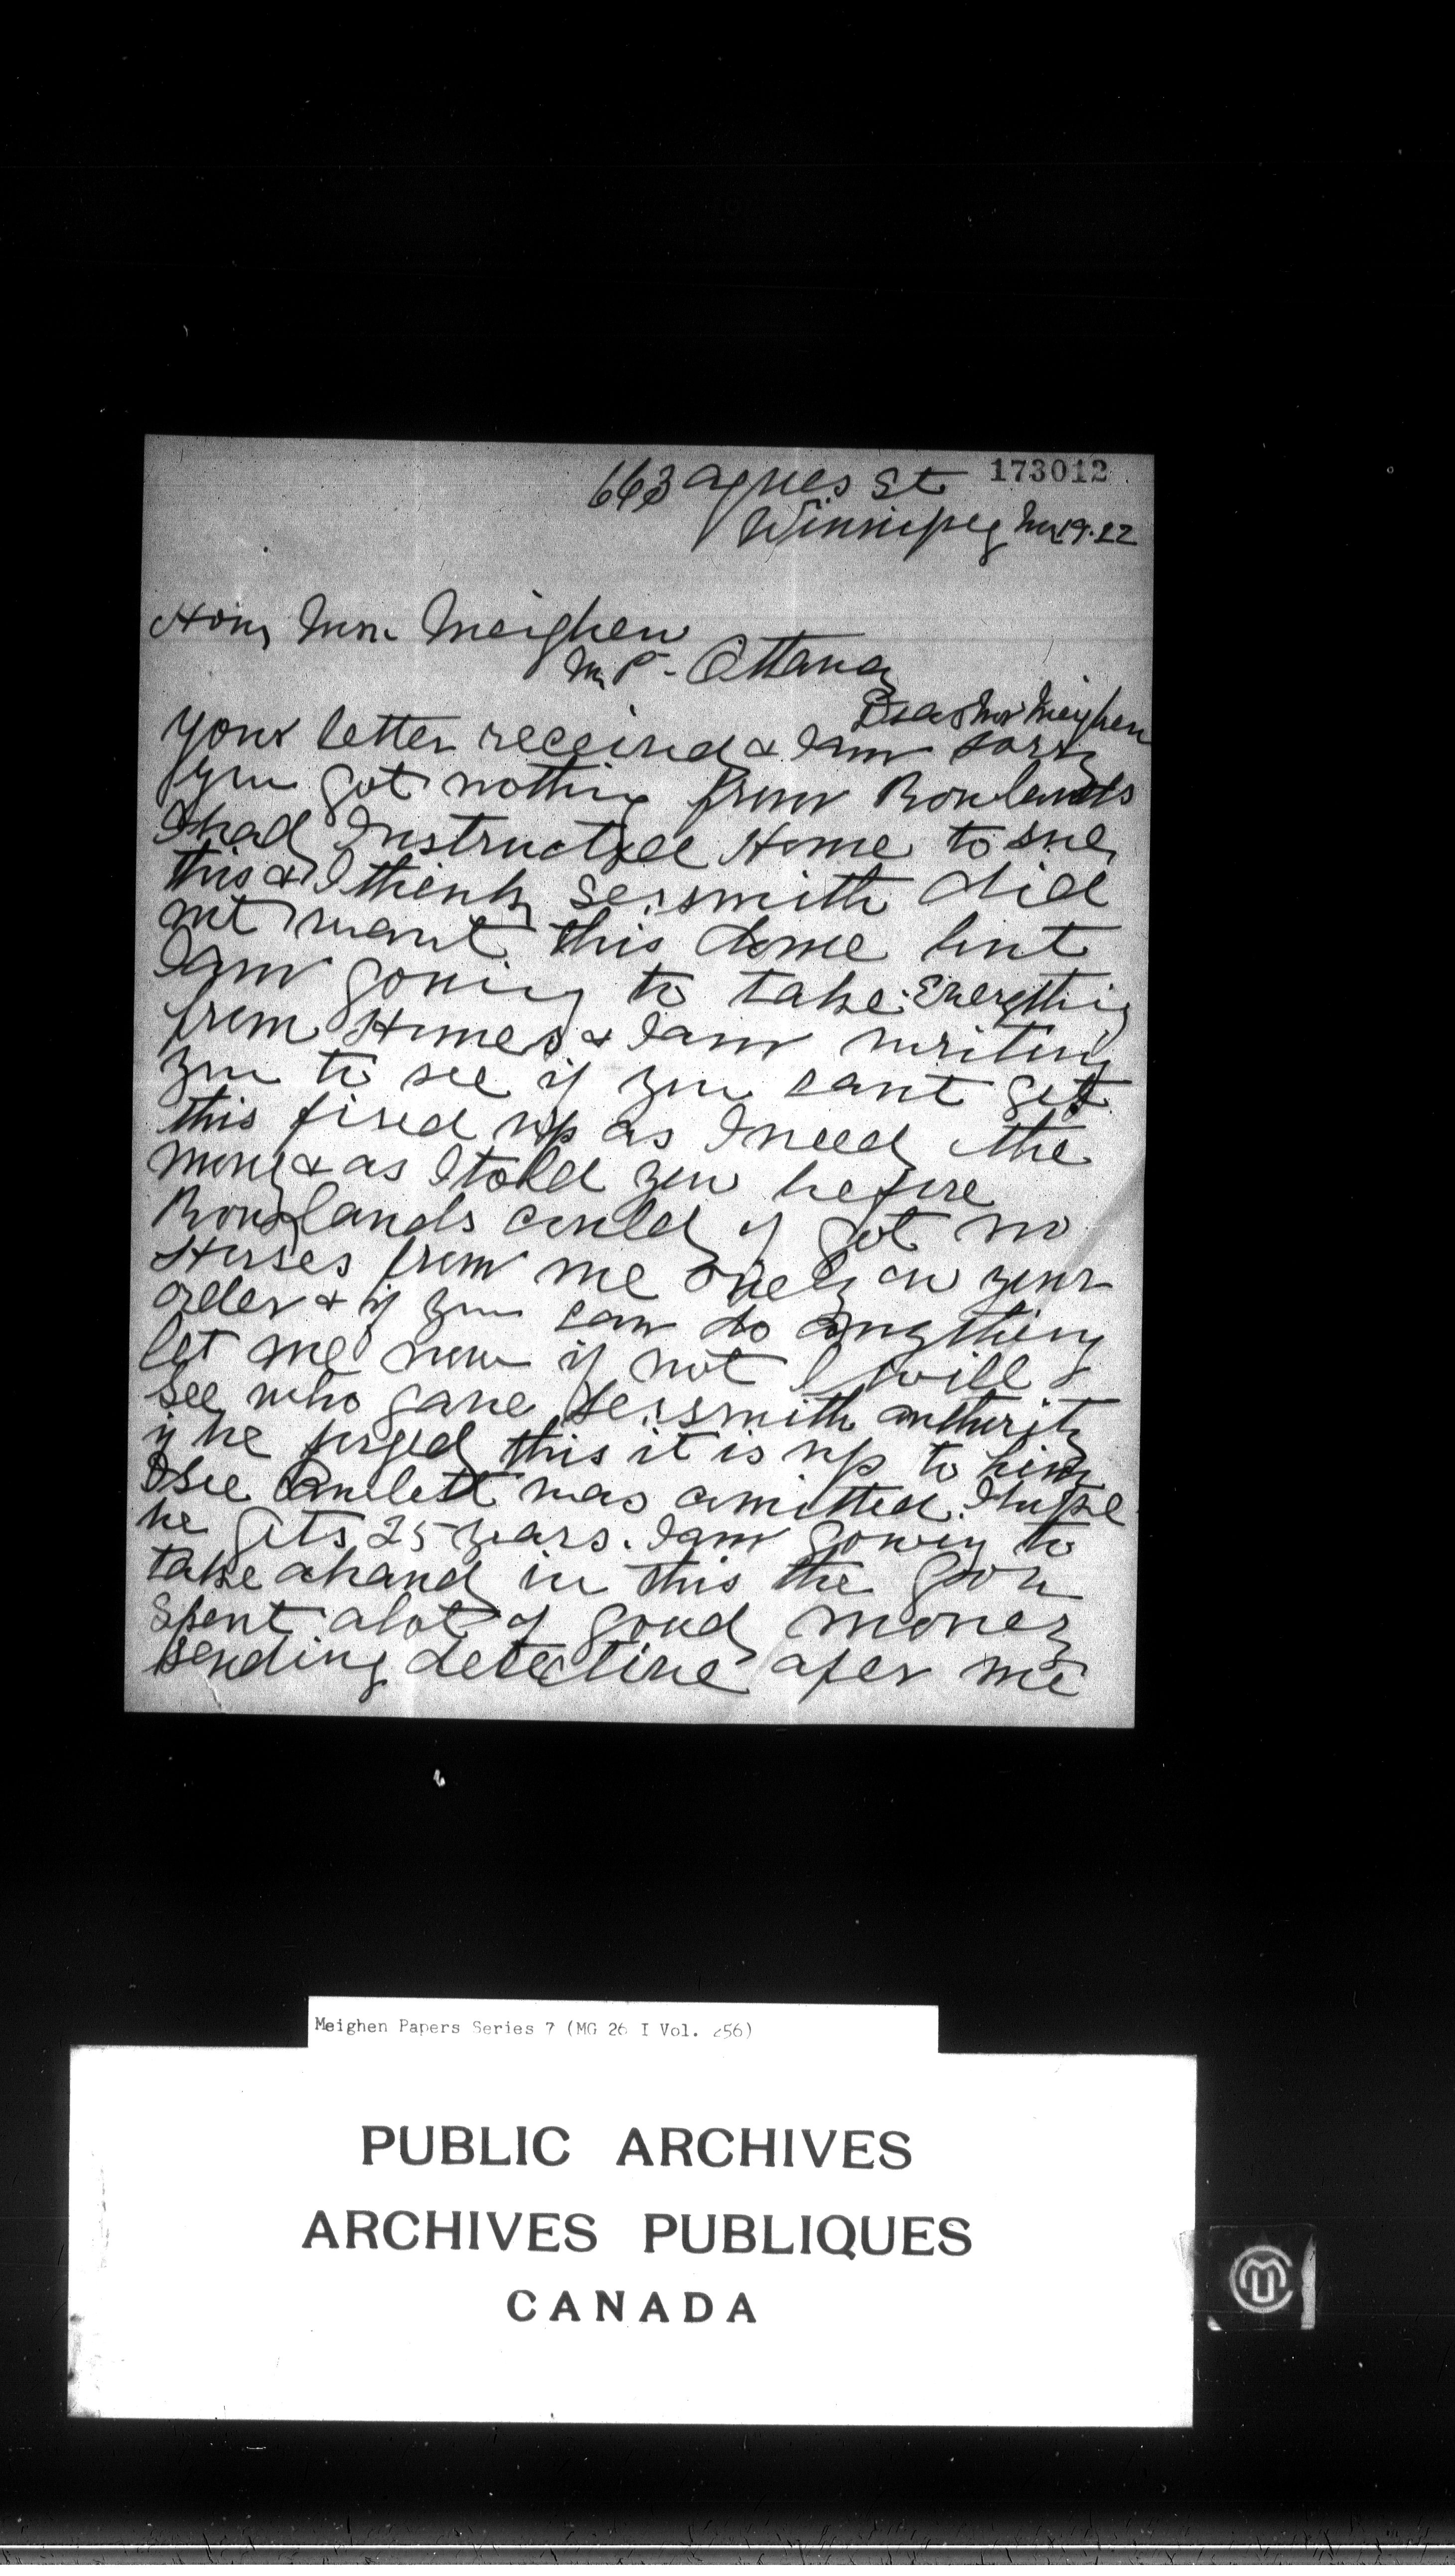 173012
663 Agnes St
Winnipeg 19.22
Hon, Meighen
M.P- Ottawa
Dear Mr Meighen
your letter received & I am sorry
you got nothing from Rowlands
I had Instructed Home to sue
this & I think Sersmith did
not want this done but
I am going to take Everything
from Homes & I am writing
you to see if you cant get
this fixed up as I need the
money & as I told you before
Rowlands could of got no
Horses from me only on your
order & if you can do anything
let me now if not I will
see who gave Sersmith authority
if he forged this it is up to him
I see was comitted. I hope
he gets 25 years. I am going to
take a hand in this the Gov
Spent alot of good money
sending detective after me
Meighen Papers Series 7 (MG 26 I Vol. 256)
PUBLIC ARCHIVES
ARCHIVES PUBLIQUES
CANADA